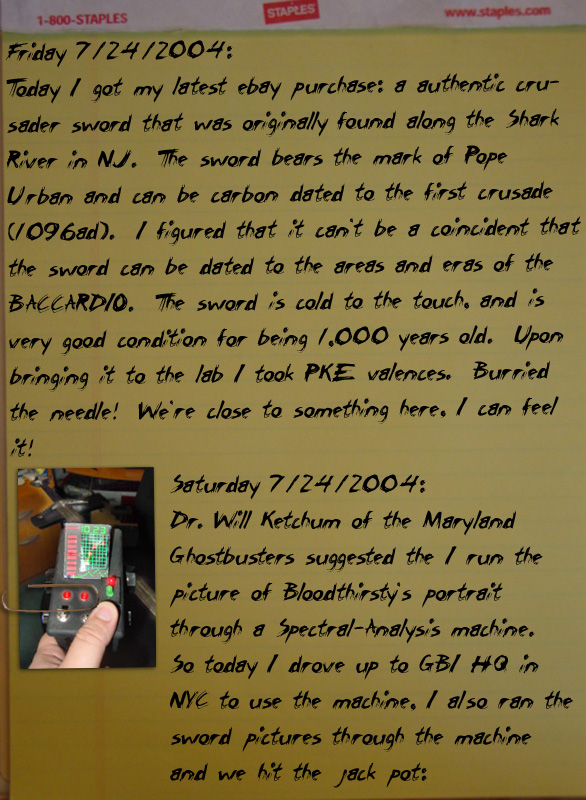 1-800-STAPLES
STAPLES
www.staples.com
Friday 7/24/2004:
Today I got my latest ebay purchase: a authentic cru-
sader sword that was originally found along the Shark
River in NJ. The sword bears the mark of Pope
Urban and can be carbon dated to the first crusade
(1096ad). I figured that it can't be a coincident that
the sword can be dated to the areas and eras of the
BACCARDIO. The sword is cold to the touch, and is
very good condition for being 1,000 years old. Upon
bringing it to the lab I took PKE valences. Burried
the needle! We're close to something here, I can feel
it!
Saturday 7/24/2004:
Dr. Will Ketchum of the Maryland
Ghostbusters suggested the I run the
picture of Bloodthirsty's portrait
through a Spectral-Analysis machine.
So today I drove up to GBI HQ in
NYC to use the machine, I also ran the
sword pictures through the machine
and we hit the jack pot: